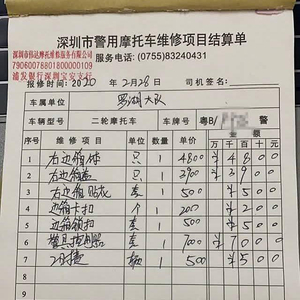 深圳市警用摩托车维修项目结算单
深圳市伟达摩托维修服务有限公司
790600788018000001
浦发银行深圳宝安支行
服务电话：(0755)83240431
报修时间：2020年2月28日 司机签名：
车属单位 罗湖大队
车辆型号 二轮摩托车 车牌号 粤B 警
序号 维修项目 单位 数量 单价 金额
万 千 百 十 元
1 右边箱体 只 1 4800 ¥ 4 8 0 0
2 右边箱盖 只 1 3900 ¥ 3 9 0 0
3 右边箱贴花 套 1 500 ¥ 5 0 0
4 边箱卡扣 个 1 200 ¥ 2 0 0
5 边箱锁扣 套 1 500 ¥ 5 0 0
6 警具控制器 套 1 7000 ¥ 7 0 0 0
7 500 ¥ 5 0 0